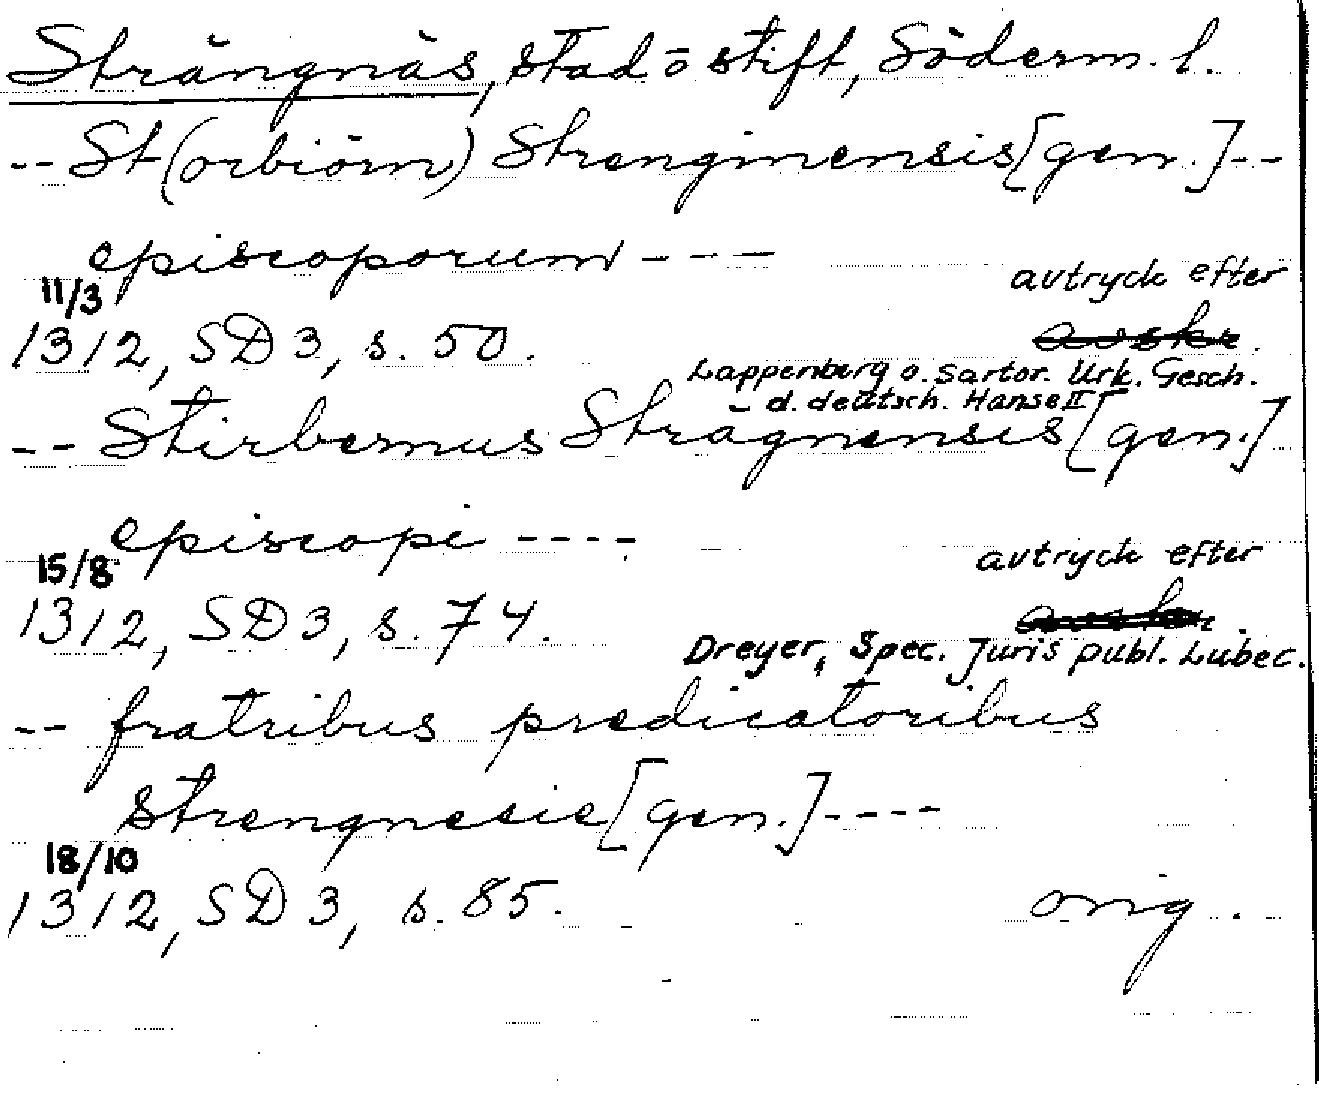 Strängnäs, stad o stift, Söderm. l.
-- St(orbiörn) Strenginensis [gen.] --
episcoporum ---
11/3
avtryck efter
1312, SD 3, s. 50.
Lappenberg o. Sartor. Urk. Gesch.
d. deutsch. Hanse II
-- Stirbernus Stragnensis [gen.]
episcopi ----
15/8
avtryck efter
1312, SD 3, s. 74.
Dreyer, Spec. Juris publ. Lubec.
-- fratribus predicatoribus
Strengnesie [gen.] ----
18/10
1312, SD 3, s. 85. orig.